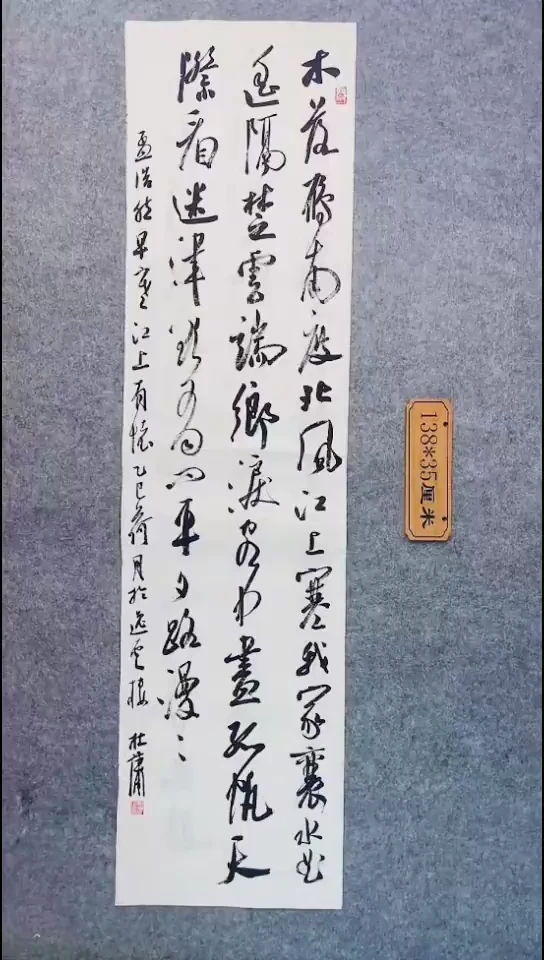 木落鴈南度北風江上寒我家襄水曲
遥隔楚雲端鄉淚客中盡孤帆天
際看迷津欲有问平夕路漫ミ
孟浩然早寒江上有懷乙巳荷月於逸雲樓 杜
138*35厘米